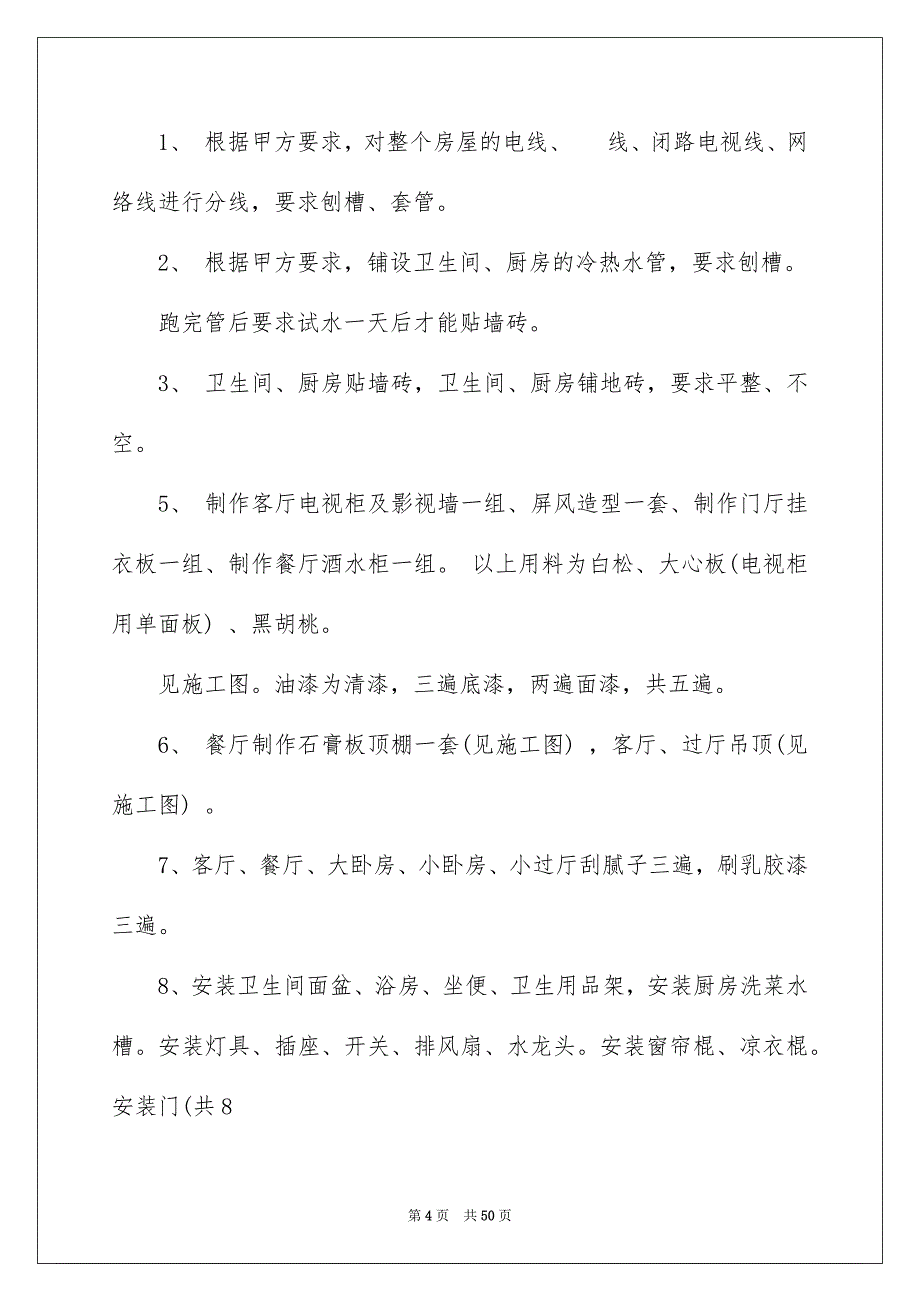 1、 根据甲方要求，对整个房屋的电线、　 线、闭路电视线、网
络线进行分线，要求刨槽、套管。
2、 根据甲方要求，铺设卫生间、厨房的冷热水管，要求刨槽。
跑完管后要求试水一天后才能贴墙砖。
3、 卫生间、厨房贴墙砖，卫生间、厨房铺地砖，要求平整、不
空。
5、 制作客厅电视柜及影视墙一组、屏风造型一套、制作门厅挂
衣板一组、制作餐厅酒水柜一组。 以上用料为白松、大心板(电视柜
用单面板) 、黑胡桃。
见施工图。油漆为清漆，三遍底漆，两遍面漆，共五遍。
6、 餐厅制作石膏板顶棚一套(见施工图) ，客厅、过厅吊顶(见
施工图) 。
7、客厅、餐厅、大卧房、小卧房、小过厅刮腻子三遍，刷乳胶漆
三遍。
8、安装卫生间面盆、浴房、坐便、卫生用品架，安装厨房洗菜水
槽。安装灯具、插座、开关、排风扇、水龙头。安装窗帘棍、凉衣棍。
安装门(共 8
第 4 页 共 50 页